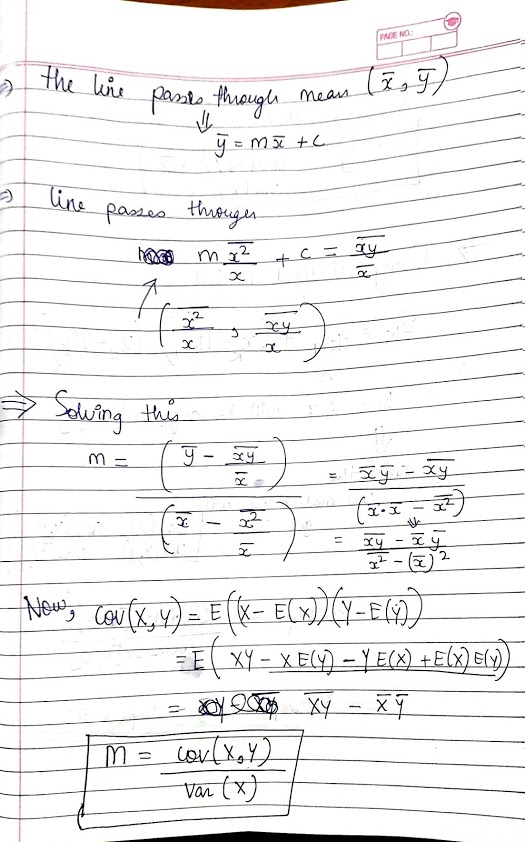 PAGE NO:
⇒ the line passes through mean (x̅, y̅)
⇓
y̅ = m x̅ + c
⇒ line passes through
m \overline{x²}/x + c = \overline{xy}/x̅
(\overline{x²}/x , \overline{xy}/x)
⇒ Solving this
m = (y̅ - \overline{xy}/x̅) / (x̅ - \overline{x²}/x̅) = (x̅ y̅ - \overline{xy}) / (x̅·x̅ - \overline{x²})
⇓
= (\overline{xy} - x̅ y̅) / (\overline{x²} - (x̅)²)
Now, cov(X,Y) = E((X - E(X))(Y - E(Y))
= E( XY - X E(Y) - Y E(X) + E(X) E(Y))
= \overline{XY} - X̅ Y̅
m = cov(X,Y) / Var(X)